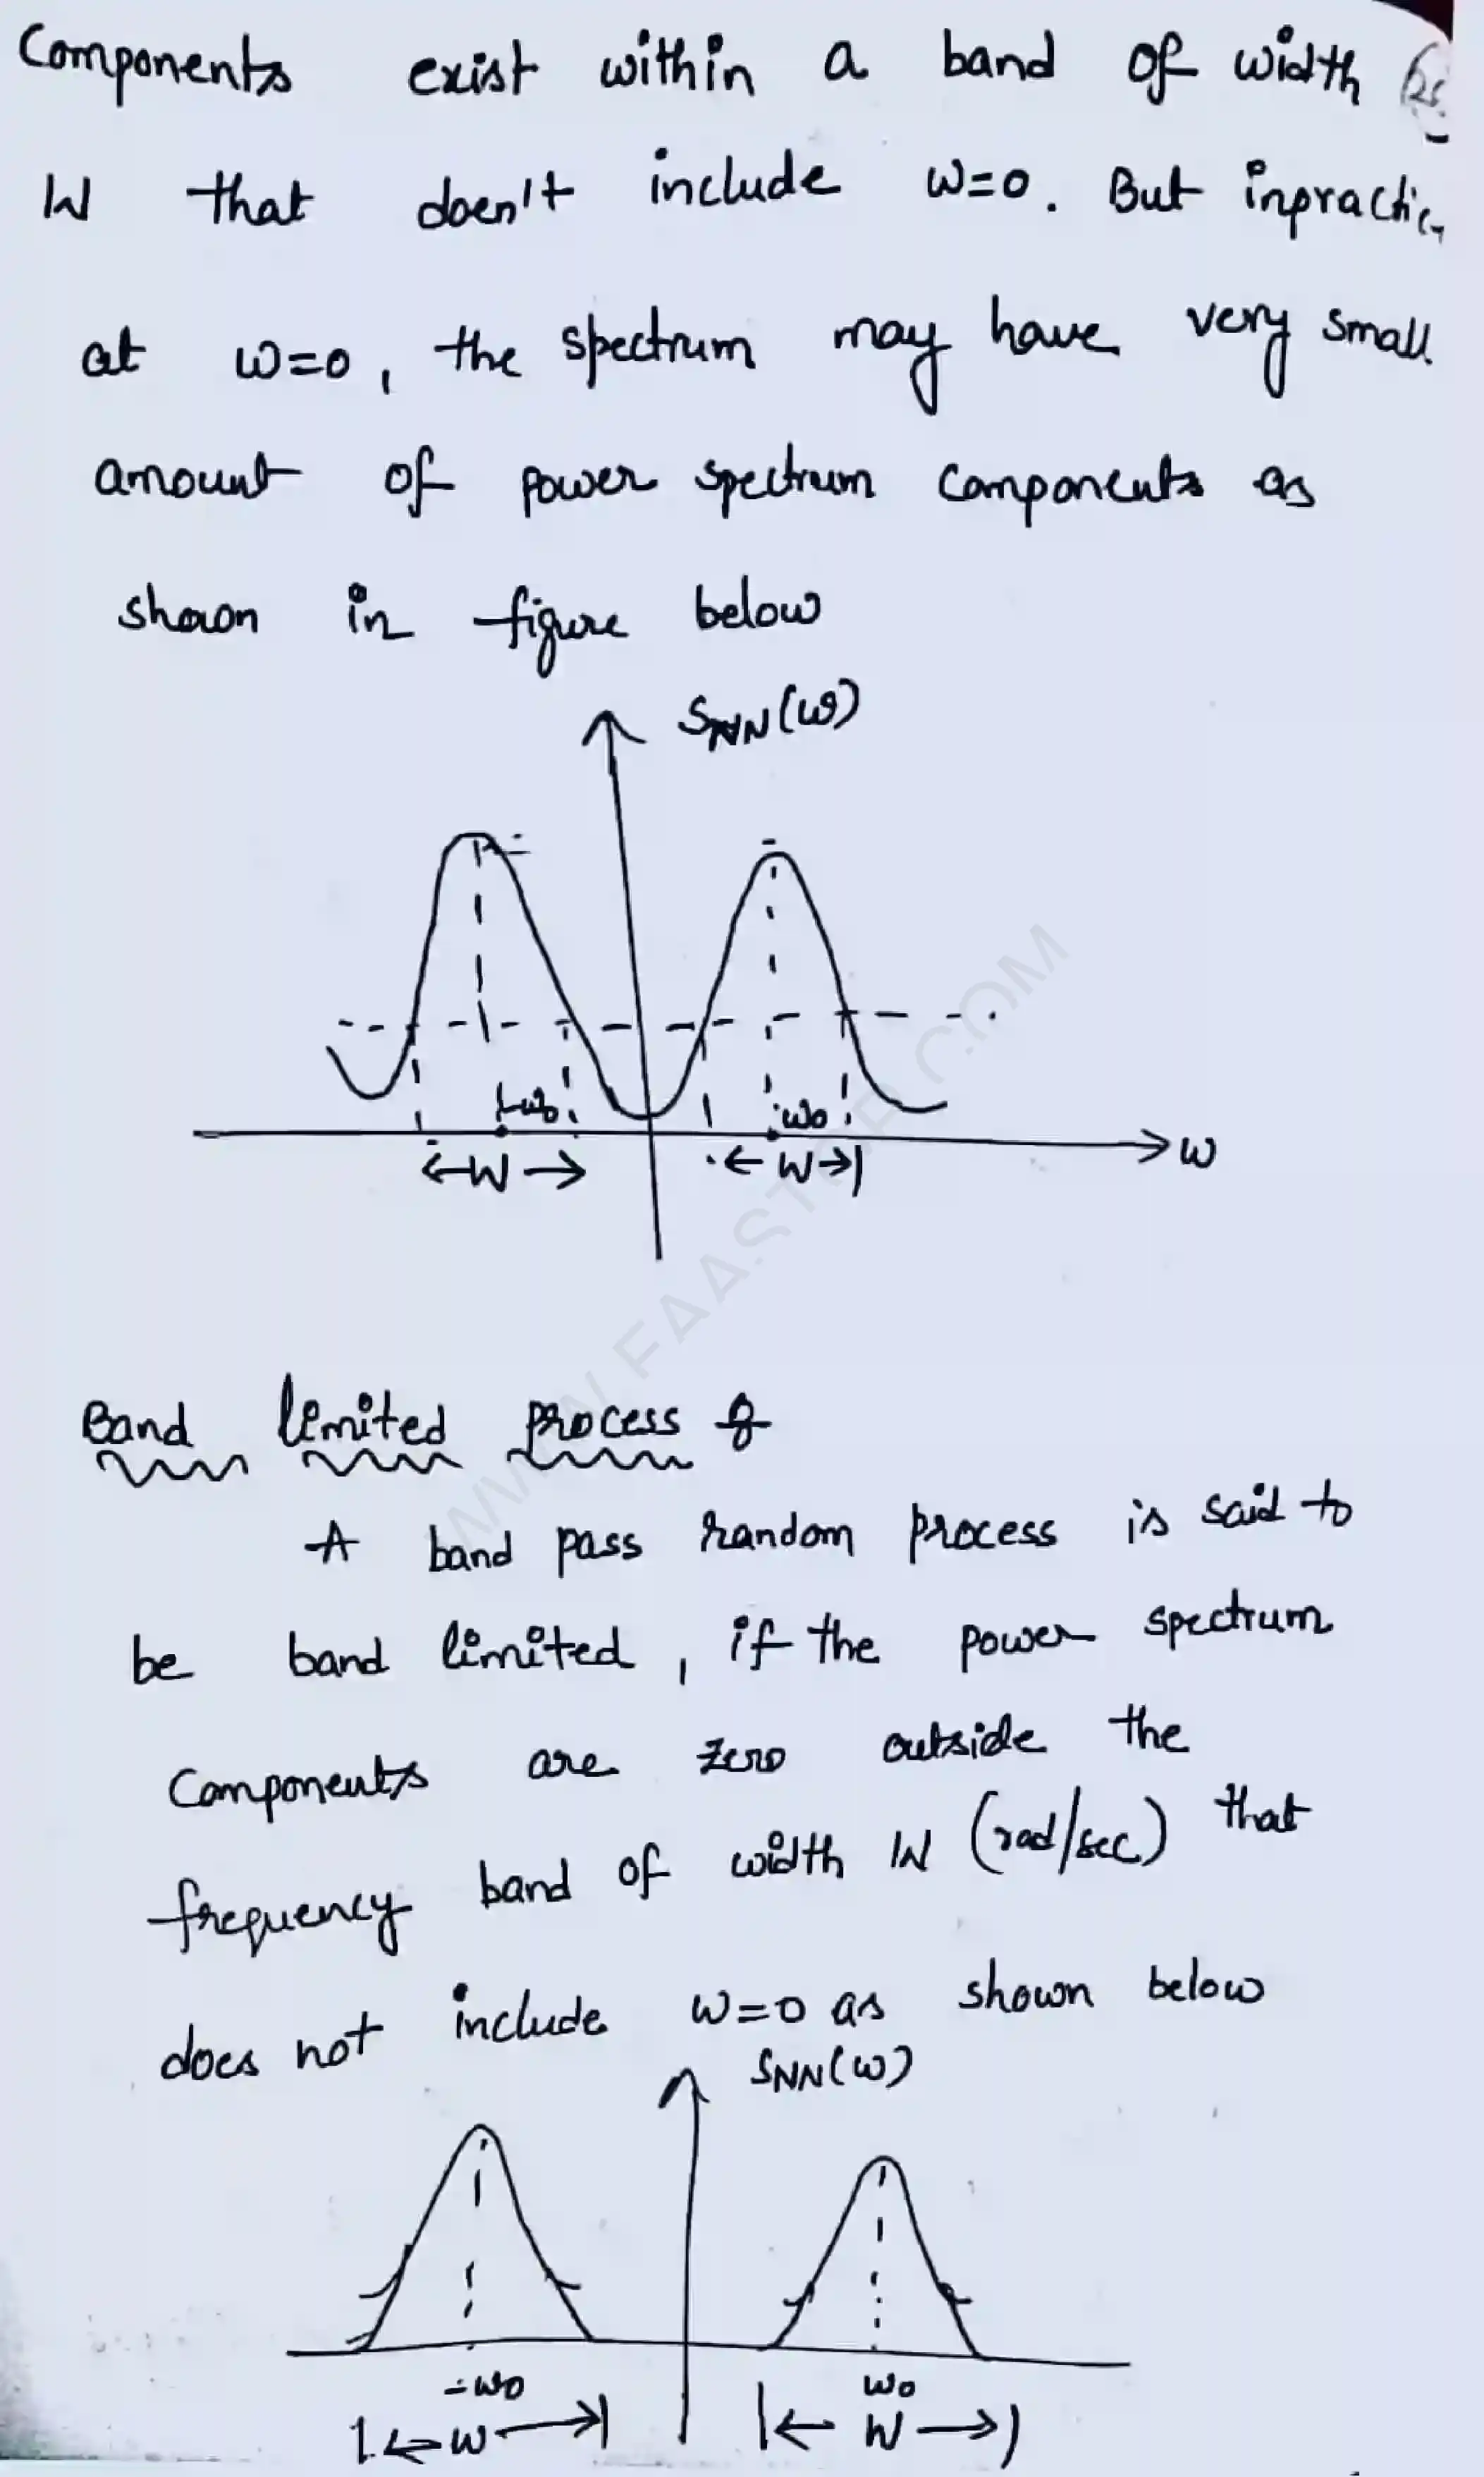 Components exist within a band of width
W that doen't include ω=0. But inpractic
at ω=0, the spectrum may have very small
amount of power spectrum components as
shown in figure below
SNN(ω)
-ω0 ω0
W W ω
Band limited process :-
A band pass random process is said to
be band limited, if the power spectrum
components are zero outside the
frequency band of width W (rad/sec) that
does not include ω=0 as shown below
SNN(ω)
-ω0 ω0
W W
WWW.FAASTOP.COM